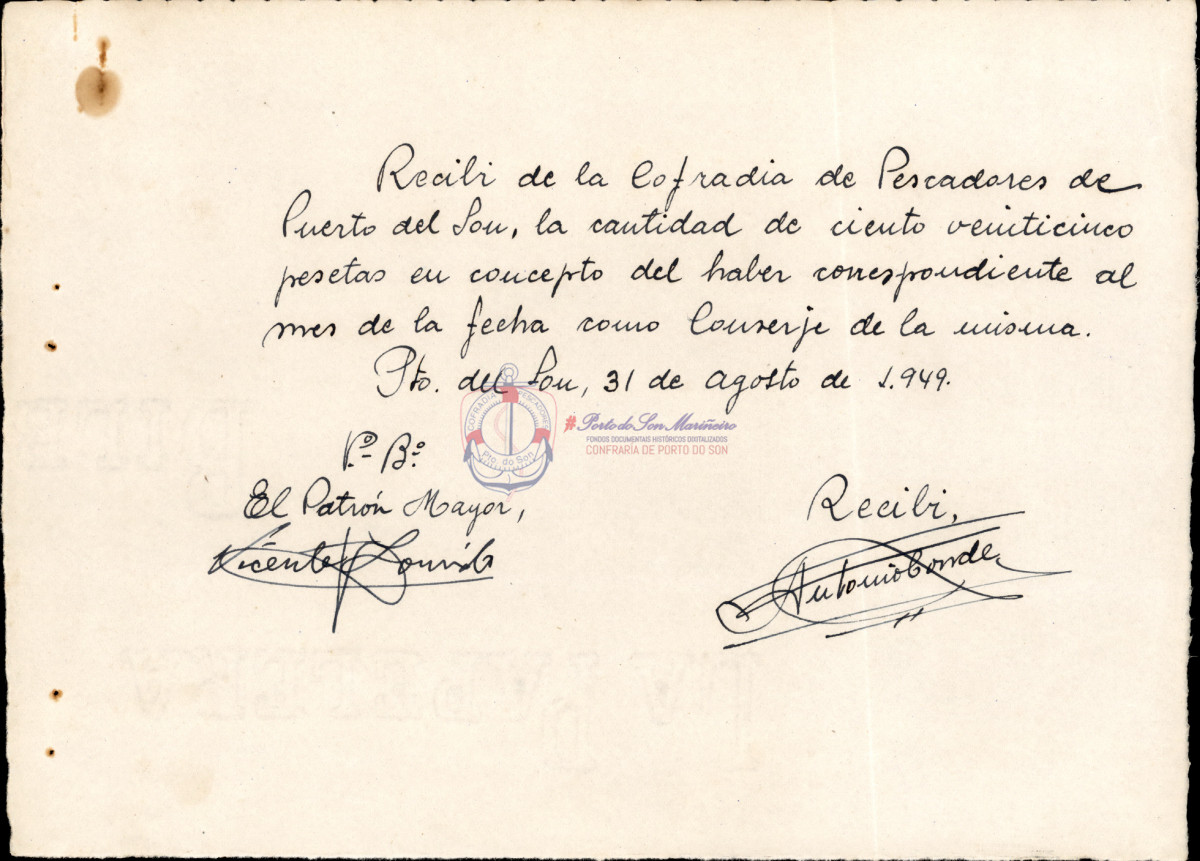 Recibi de la Cofradia de Pescadores de
Puerto del Son, la cantidad de ciento veinticinco
pesetas en concepto del haber correspondiente al
mes de la fecha como Conserje de la misma.
Pto. del Son, 31 de agosto de 1.949.
COFRADIA PESCADORES
Pto. do Son
#Porto do Son Mariñeiro
FONDOS DOCUMENTAIS HISTÓRICOS DIXITALIZADOS
CONFRARÍA DE PORTO DO SON
Vº Bº
El Patrón Mayor,
Vicente
Recibi,
Antonio Conde